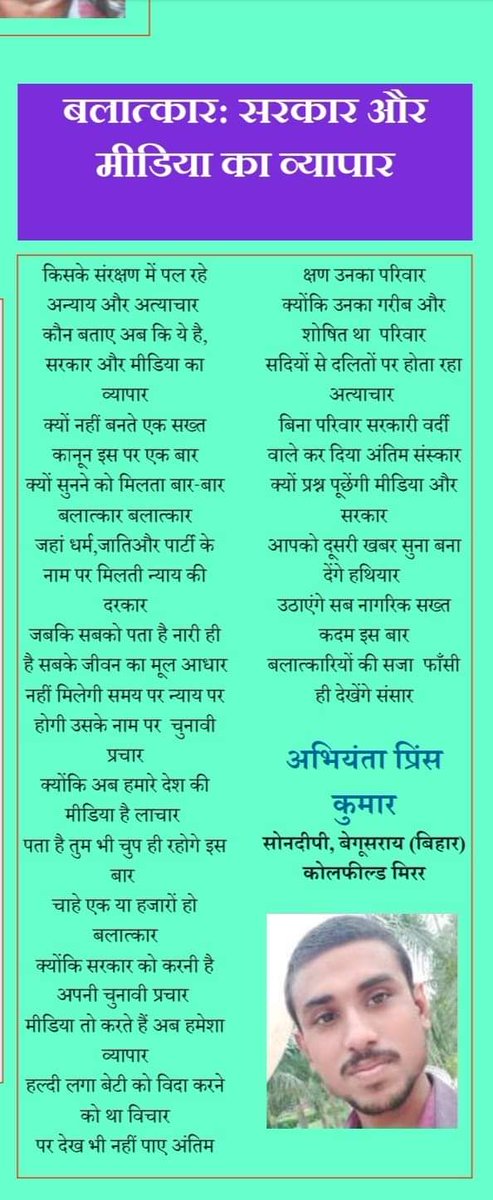 बलात्कार: सरकार और
मीडिया का व्यापार
किसके संरक्षण में पल रहे
अन्याय और अत्याचार
कौन बताए अब कि ये है,
सरकार और मीडिया का
व्यापार
क्यों नहीं बनते एक सख्त
कानून इस पर एक बार
क्यों सुनने को मिलता बार-बार
बलात्कार बलात्कार
जहां धर्म,जातिऔर पार्टी के
नाम पर मिलती न्याय की
दरकार
जबकि सबको पता है नारी ही
है सबके जीवन का मूल आधार
नहीं मिलेगी समय पर न्याय पर
होगी उसके नाम पर चुनावी
प्रचार
क्योंकि अब हमारे देश की
मीडिया है लाचार
पता है तुम भी चुप ही रहोगे इस
बार
चाहे एक या हजारों हो
बलात्कार
क्योंकि सरकार को करनी है
अपनी चुनावी प्रचार
मीडिया तो करते हैं अब हमेशा
व्यापार
हल्दी लगा बेटी को विदा करने
को था विचार
पर देख भी नहीं पाए अंतिम
क्षण उनका परिवार
क्योंकि उनका गरीब और
शोषित था परिवार
सदियों से दलितों पर होता रहा
अत्याचार
बिना परिवार सरकारी वर्दी
वाले कर दिया अंतिम संस्कार
क्यों प्रश्न पूछेंगी मीडिया और
सरकार
आपको दूसरी खबर सुना बना
देंगे हथियार
उठाएंगे सब नागरिक सख्त
कदम इस बार
बलात्कारियों की सजा फाँसी
ही देखेंगे संसार
अभियंता प्रिंस
कुमार
सोनदीपी, बेगूसराय (बिहार)
कोलफील्ड मिरर